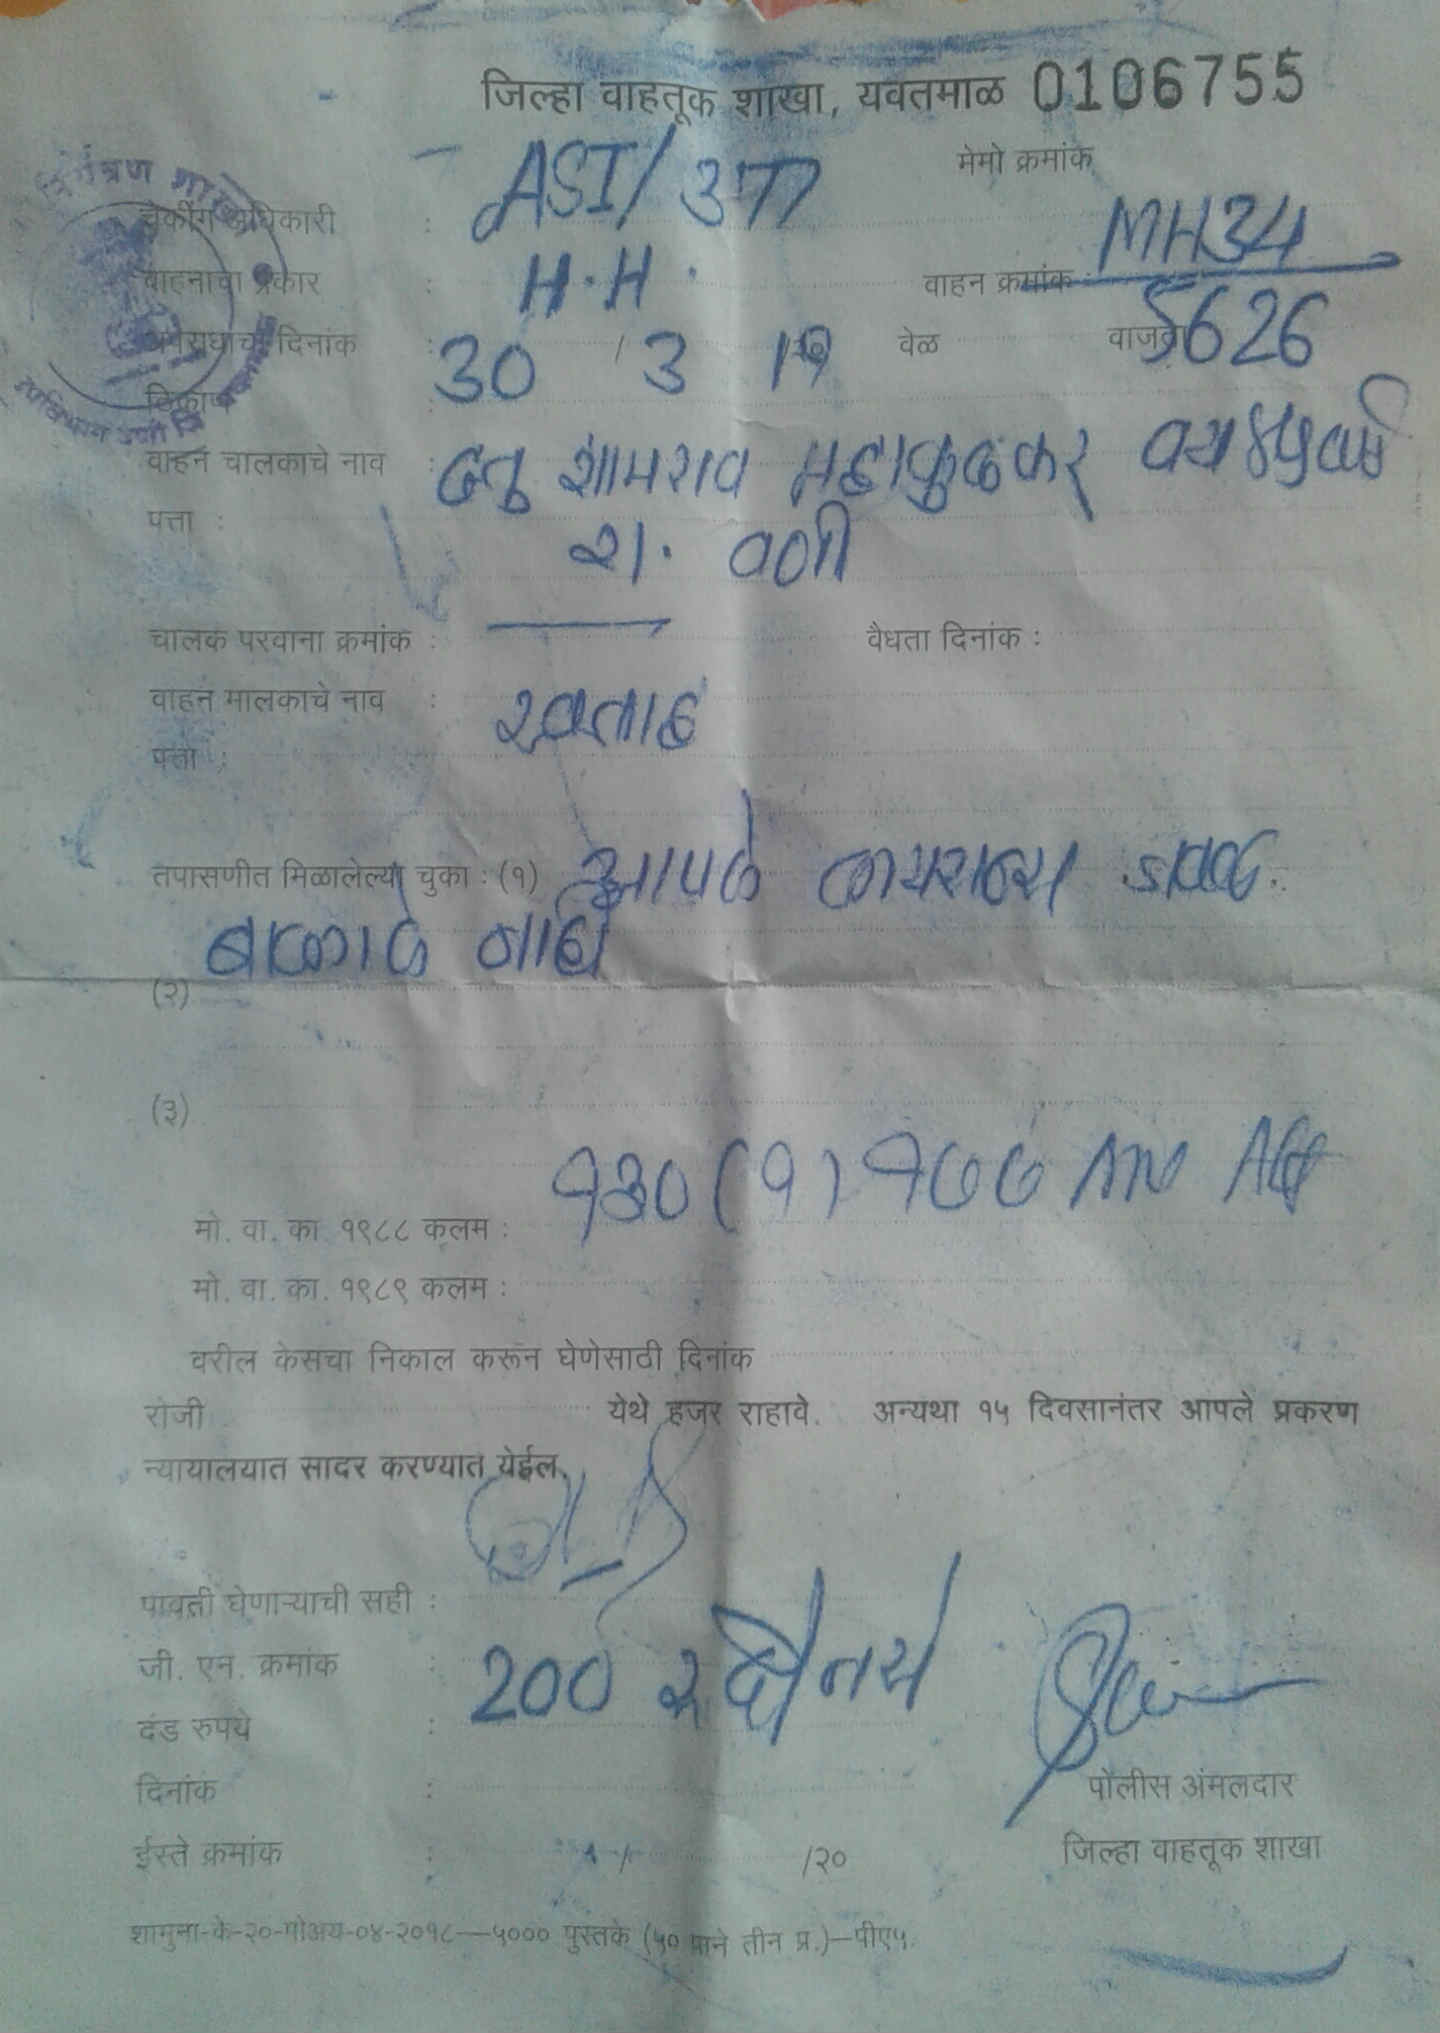 जिल्हा वाहतूक शाखा, यवतमाळ 0106755
मेमो क्रमांक
चेकींग अधिकारी : ASI/377
वाहनाचा प्रकार : H.H.
वाहन क्रमांक : MH34
5626
अपराधाचा दिनांक : 30 / 3 19 वेळ वाजता
ठिकाण :
वाहन चालकाचे नाव : दत्तु शामराव महाकुलकर वय ४५ वर्ष
पत्ता : रा. वणी
चालक परवाना क्रमांक : वैधता दिनांक :
वाहन मालकाचे नाव : स्वताह
पत्ता :
तपासणीत मिळालेल्या चुका : (१) आपले लायसन्स जवळ
बाळगले नाही
(२)
(३)
मो. वा. का. १९८८ कलम : १३०(१) १७७ MV Act
मो. वा. का. १९८९ कलम :
वरील केसचा निकाल करून घेणेसाठी दिनांक
रोजी येथे हजर राहावे. अन्यथा १५ दिवसानंतर आपले प्रकरण
न्यायालयात सादर करण्यात येईल.
पावती घेणाऱ्याची सही :
जी. एन. क्रमांक :
दंड रुपये : 200 रु दोनशे
दिनांक :
पोलीस अंमलदार
ईस्ते क्रमांक : / /२०
जिल्हा वाहतूक शाखा
शामुना-के-२०-मोअय-०४-२०१८—५००० पुस्तके (५० पाने तीन प्र.)—पीए५.